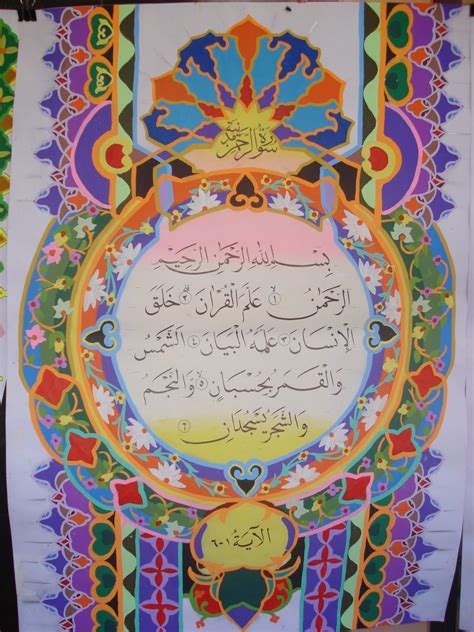 سورة الرحمن مدنية
بِسْمِ اللهِ الرَّحْمٰنِ الرَّحِيْمِ
الرَّحْمٰنُ ١ عَلَّمَ الْقُرْآنَ ٢ خَلَقَ
الْإِنْسَانَ ٣ عَلَّمَهُ الْبَيَانَ ٤ الشَّمْسُ
وَالْقَمَرُ بِحُسْبَانٍ ٥ وَالنَّجْمُ
وَالشَّجَرُ يَسْجُدَانِ ٦
الآية ١-٦